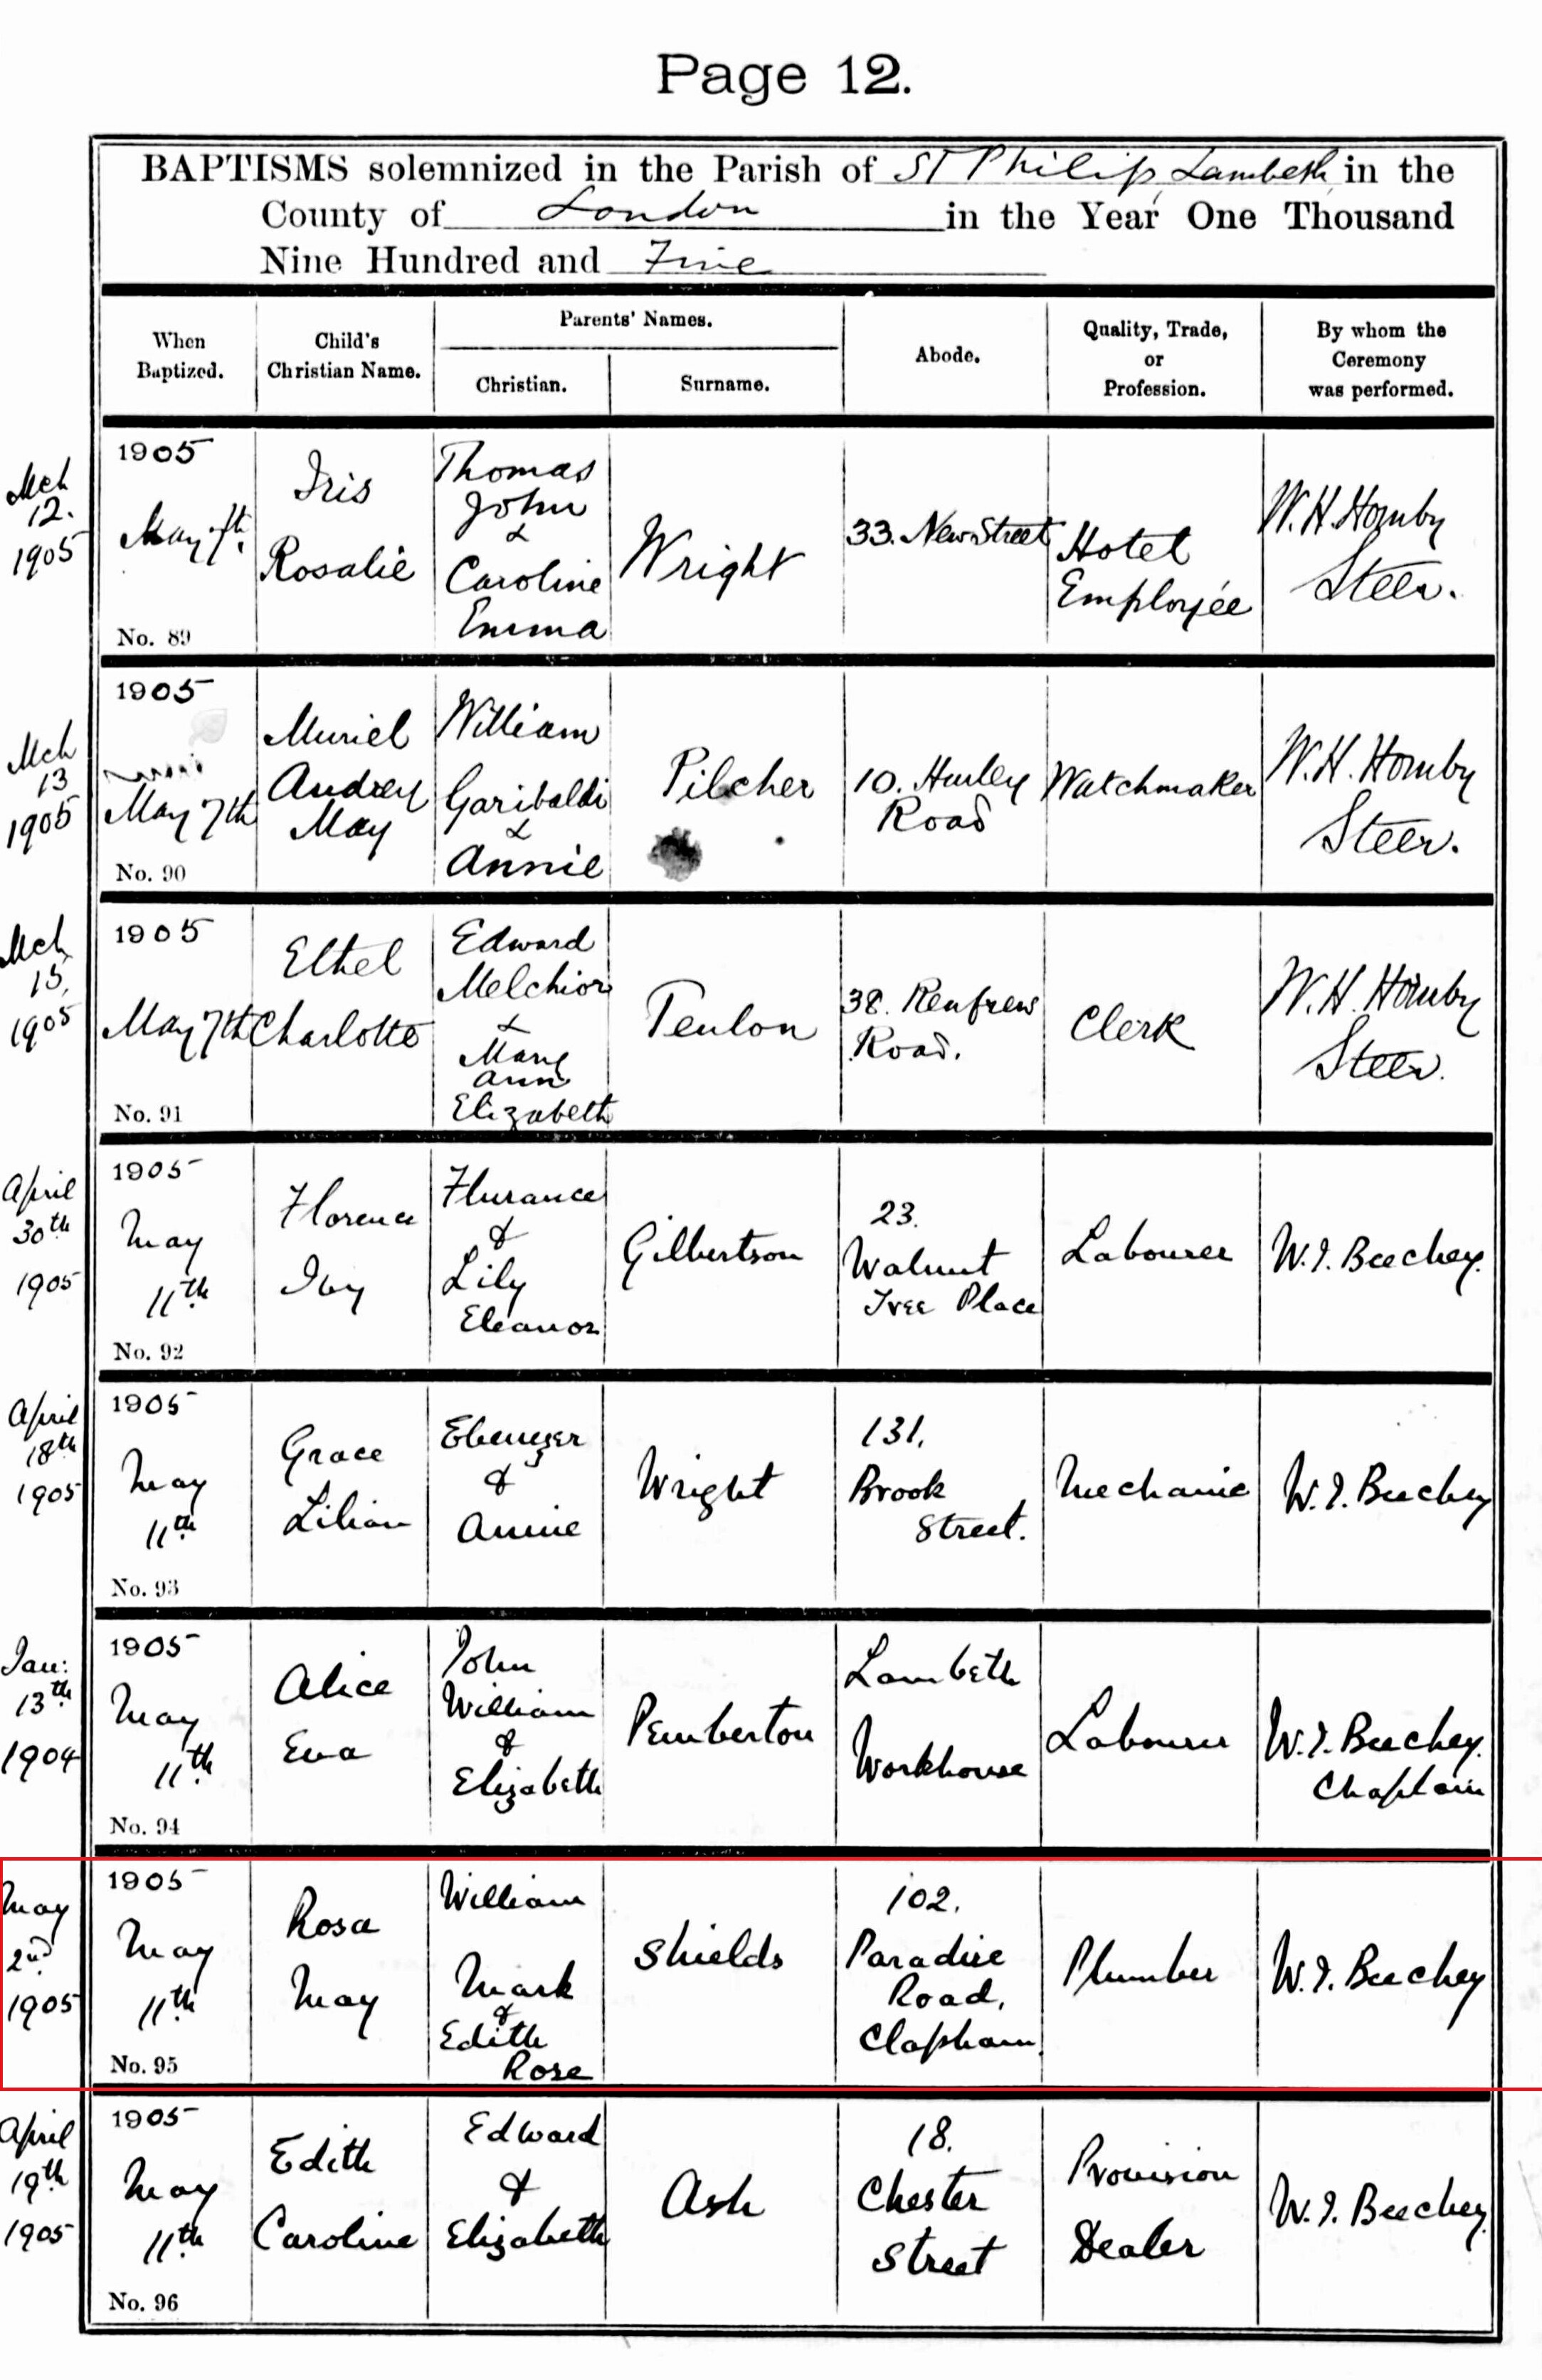 Page 12.
BAPTISMS solemnized in the Parish of St Philip, Lambeth, in the
County of London in the Year One Thousand
Nine Hundred and Five
When
Baptized.
Child's
Christian Name.
Parents' Names.
Christian.
Surname.
Abode.
Quality, Trade,
or
Profession.
By whom the
Ceremony
was performed.
Mch
12.
1905
1905
May 7th.
No. 89
Iris
Rosalie
Thomas
John
&
Caroline
Emma
Wright
33. New Street
Hotel
Employée
W. H. Hornby
Steer.
Mch
13
1905
1905
May 7th
No. 90
Muriel
Audrey
May
William
Garibaldi
&
Annie
Pilcher
10. Hurley
Road
Watchmaker
W. H. Hornby
Steer.
Mch
15,
1905
1905
May 7th
No. 91
Ethel
Charlotte
Edward
Melchior
&
Mary
Ann
Elizabeth
Teulon
38. Renfrew
Road.
Clerk
W. H. Hornby
Steer.
April
30th
1905
1905
May
11th
No. 92
Florence
Ivy
Flurance
&
Lily
Eleanor
Gilbertson
23.
Walnut
Tree Place
Labourer
W. I. Beechey.
April
18th
1905
1905
May
11th
No. 93
Grace
Lilian
Ebenezer
&
Annie
Wright
131,
Brook
Street.
Mechanic
W. I. Beechey
Jan:
13th
1904
1905
May
11th
No. 94
Alice
Eva
John
William
&
Elizabeth
Pemberton
Lambeth
Workhouse
Labourer
W. I. Beechey.
Chaplain
May
2nd
1905
1905
May
11th
No. 95
Rosa
May
William
Mark
&
Edith
Rose
Shields
102.
Paradise
Road,
Clapham.
Plumber
W. I. Beechey
April
19th
1905
1905
May
11th
No. 96
Edith
Caroline
Edward
&
Elizabeth
Ash
18.
Chester
Street
Provision
Dealer
W. I. Beechey.